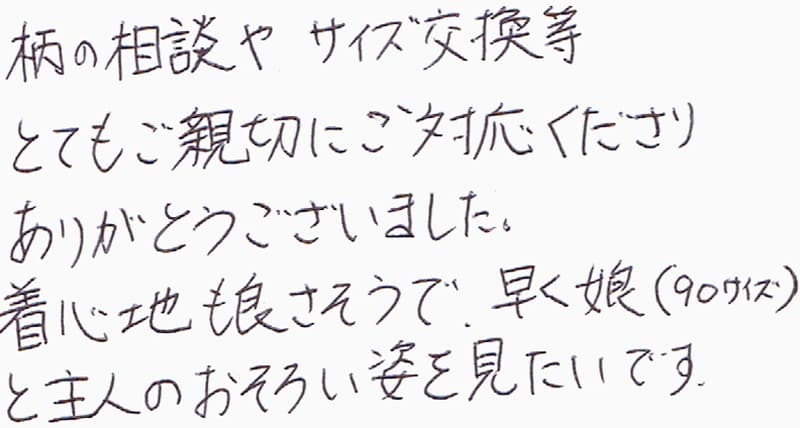 柄の相談や サイズ交換等
とてもご親切にご対応くださり
ありがとうございました。
着心地も良さそうで、早く娘(90サイズ)
と主人のおそろい姿を見たいです。